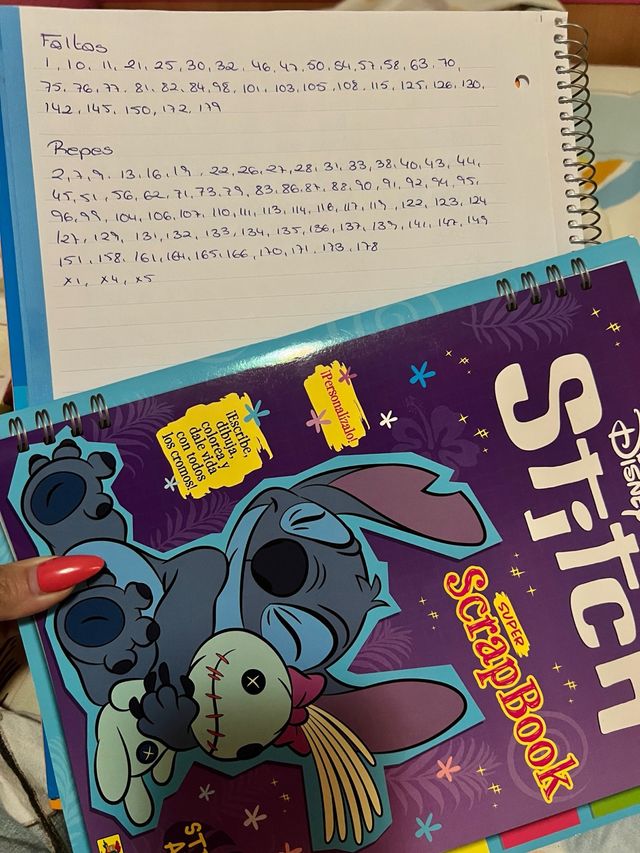 Faltas
1, 10, 11, 21, 25, 30, 32, 46, 47, 50, 54, 57, 58, 63, 70,
75, 76, 77, 81, 82, 84, 98, 101, 103, 105, 108, 115, 125, 126, 130,
142, 145, 150, 172, 179
Repes
2, 7, 9, 13, 16, 19, 22, 26, 27, 28, 31, 33, 38, 40, 43, 44,
45, 51, 56, 62, 71, 73, 79, 83, 86, 87, 88, 90, 91, 92, 94, 95,
96, 99, 104, 106, 107, 110, 111, 113, 114, 116, 117, 119, 122, 123, 124
127, 129, 131, 132, 133, 134, 135, 136, 137, 139, 141, 147, 149
151, 158, 161, 164, 165, 166, 170, 171, 173, 178
x1, x4, x5
1
DISNEY
STITCH
SUPER
SCRAPBOOK
¡Personalízalo!
¡Escribe,
dibuja,
colorea y
dale vida
con todos
los cromos!